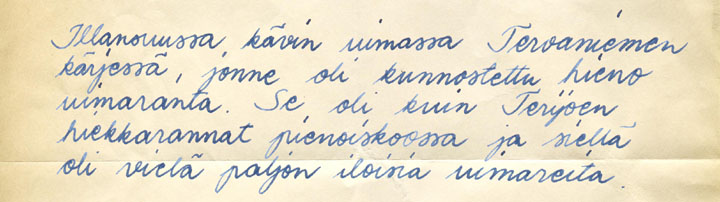 Illansuussa kävin uimassa Tervaniemen
kärjessä, jonne oli kunnostettu hieno
uimaranta. Se oli kuin Terijoen
hiekkarannat pienoiskoossa ja sieltä
oli vielä paljon iloisia uimareita.